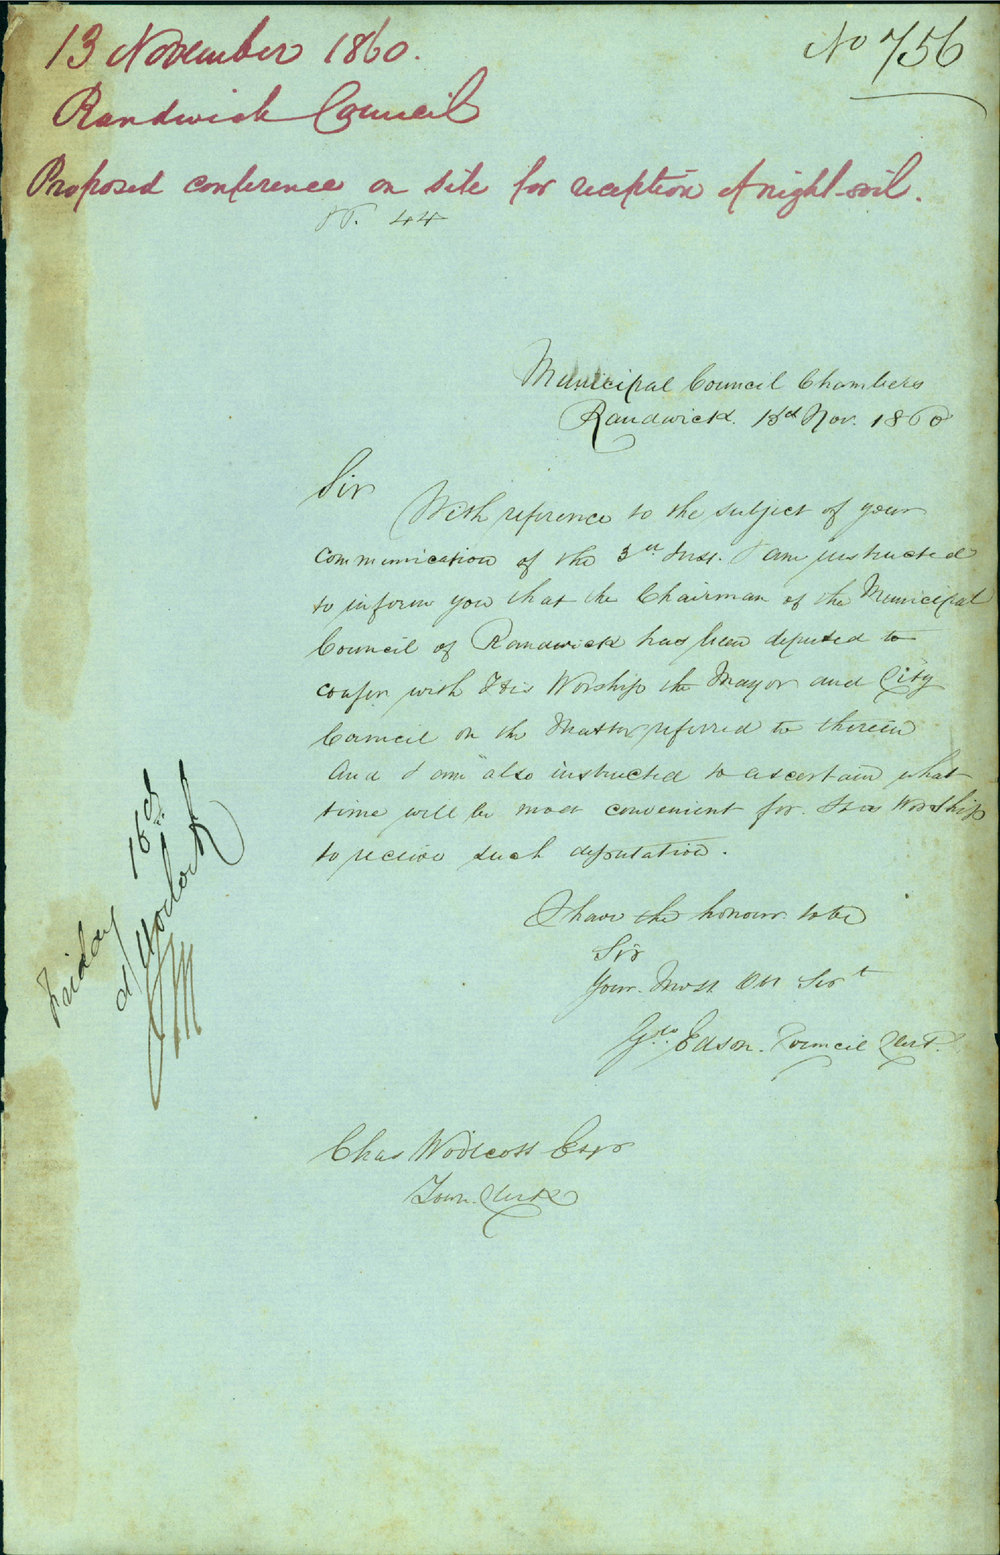 13 November 1860.
No 756
Randwick Council
Proposed conference on site for reception of night-soil.
44
Municipal Council Chambers
Randwick. 13d Nov. 1860
Sir
With reference to the subject of your
communication of the 3rd Inst. I am instructed
to inform you that the Chairman of the Municipal
Council of Randwick has been deputed to
confer with His Worship the Mayor and City
Council on the Matter referred to therein
And I am also instructed to ascertain what
time will be most convenient for His Worship
to receive such deputation.
I have the honour to be
Sir
Your Most Obt Servt
Geo. Edson. Council Clerk.
Chas Woolcott Esqr
Town Clerk
Friday 16th
at 11 oclock